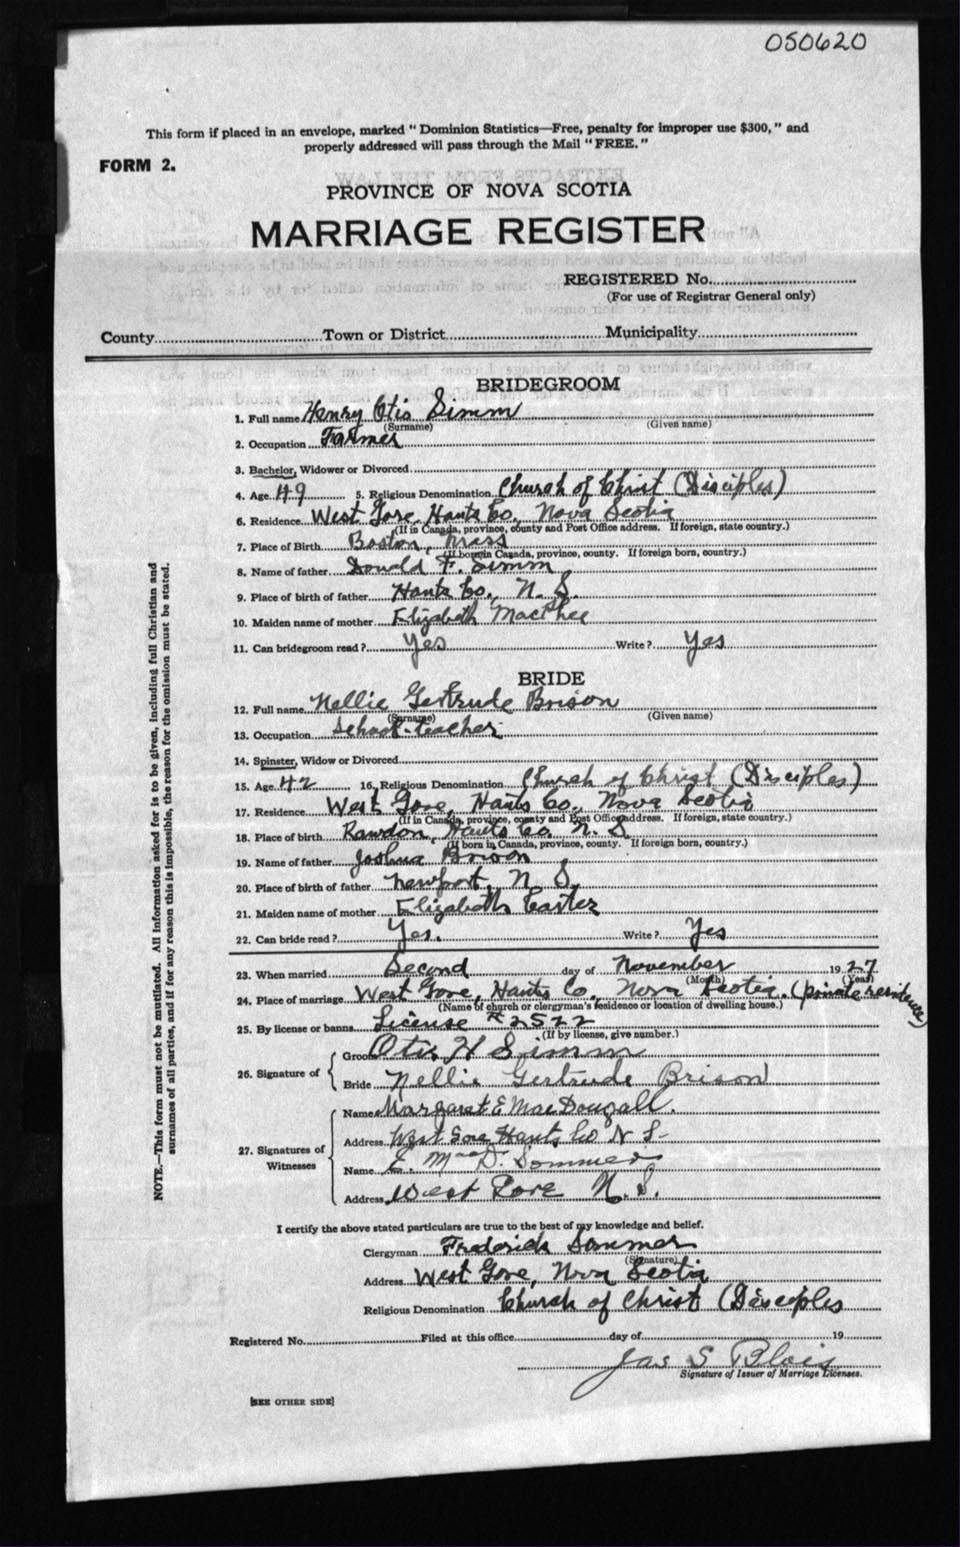 050620
This form if placed in an envelope, marked "Dominion Statistics—Free, penalty for improper use $300," and
properly addressed will pass through the Mail "FREE."
FORM 2.
PROVINCE OF NOVA SCOTIA
MARRIAGE REGISTER
REGISTERED No.
(For use of Registrar General only)
County Town or District Municipality
BRIDEGROOM
1. Full name Henry Otis Simm
(Surname) (Given name)
2. Occupation Farmer
3. Bachelor, Widower or Divorced
4. Age 49 5. Religious Denomination Church of Christ (Disciples)
6. Residence West Gore, Hants Co, Nova Scotia
(If in Canada, province, county and Post Office address. If foreign, state country.)
7. Place of Birth Boston, Mass
(If born in Canada, province, county. If foreign born, country.)
8. Name of father Donald F. Simm
9. Place of birth of father Hants Co., N. S.
10. Maiden name of mother Elizabeth MacPhee
11. Can bridegroom read? Yes Write? Yes
BRIDE
12. Full name Nellie Gertrude Brison
(Surname) (Given name)
13. Occupation School-teacher
14. Spinster, Widow or Divorced
15. Age 42 16. Religious Denomination Church of Christ (Disciples)
17. Residence West Gore, Hants Co., Nova Scotia
(If in Canada, province, county and Post Office address. If foreign, state country.)
18. Place of birth Rawdon, Hants Co. N. S
(If born in Canada, province, county. If foreign born, country.)
19. Name of father Joshua Brison
20. Place of birth of father Newport, N. S.
21. Maiden name of mother Elizabeth Easter
22. Can bride read? Yes. Write? Yes
23. When married Second day of November 1927
(Month) (Year)
24. Place of marriage West Gore, Hants Co, Nova Scotia. (private residence)
(Name of church or clergyman's residence or location of dwelling house.)
25. By license or banns License # 2522
(If by license, give number.)
26. Signature of
Groom Otis H Simm
Bride Nellie Gertrude Brison
27. Signatures of Witnesses
Name Margaret E MacDougall.
Address West Gore Hants Co N S-
Name E. MacD. Sommer
Address West Gore N. S.
I certify the above stated particulars are true to the best of my knowledge and belief.
Clergyman Frederick Sommer
(Signature)
Address West Gore, Nova Scotia
Religious Denomination Church of Christ (Disciples
Registered No. Filed at this office day of 19
Jas S Blois
Signature of Issuer of Marriage Licenses.
[SEE OTHER SIDE]
NOTE.—This form must not be mutilated. All information asked for is to be given, including full Christian and
surnames of all parties, and if for any reason this is impossible, the reason for the omission must be stated.